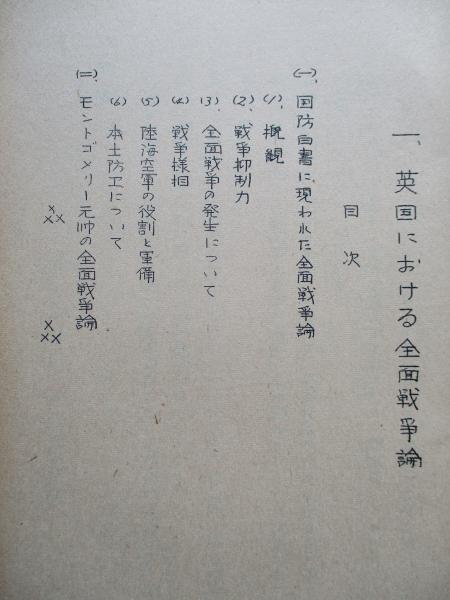 一、英国における全面戦争論
目次
(一)、国防白書に現われた全面戦争論
(1)、概観
(2)、戦争抑制力
(3)、全面戦争の発生について
(4)、戦争様相
(5)、陸海空軍の役割と軍備
(6)、本土防工について
(二)、モントゴメリー元帥の全面戦争論
×
××
×
××